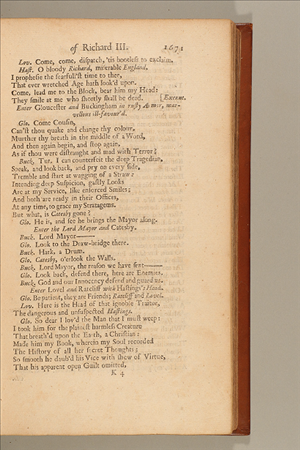 of Richard III. 1671
Lov. Come, come, dispatch, 'tis bootless to exclaim.
Hast. O bloody Richard, miserable England,
I prophesie the fearfull'st time to thee,
That ever wretched Age hath look'd upon.
Come, lead me to the Block, bear him my Head;
They smile at me who shortly shall be dead. [Exeunt.
Enter Gloucester and Buckingham in rusty Armor, mar-
vellous ill-favour'd.
Glo. Come Cousin,
Can'st thou quake and change thy colour,
Murther thy breath in the middle of a Word,
And then again begin, and stop again,
As if thou wert distraught and mad with Terror?
Buck. Tut, I can counterfeit the deep Tragedian,
Speak, and look back, and pry on every side,
Tremble and start at wagging of a Straw:
Intending deep Suspicion, gastly Looks
Are at my Service, like enforced Smiles;
And both are ready in their Offices,
At any time, to grace my Stratagems.
But what, is Catesby gone?
Glo. He is, and see he brings the Mayor along.
Enter the Lord Mayor and Catesby.
Buck. Lord Mayor———
Glo. Look to the Draw-bridge there.
Buck. Hark, a Drum.
Glo. Catesby, o'erlook the Walls.
Buck. Lord Mayor, the reason we have sent———
Glo. Look back, defend thee, here are Enemies.
Buck. God and our Innocency defend and guard us.
Enter Lovel and Ratcliff with Hastings's Head.
Glo. Be patient, they are Friends; Ratcliff and Lovel.
Lov. Here is the Head of that ignoble Traitor,
The dangerous and unsuspected Hastings.
Glo. So dear I lov'd the Man that I must weep:
I took him for the plainest harmless Creature
That breath'd upon the Earth, a Christian:
Made him my Book, wherein my Soul recorded
The History of all her secret Thoughts;
So smooth he daub'd his Vice with shew of Virtue,
That his apparent open Guilt omitted,
K 4